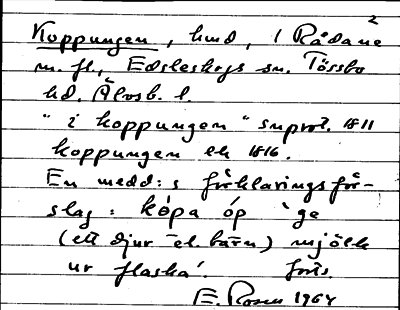 2
Koppungen, hmd, i Rådane
m. fl., Edsleskogs sn. Tössbo
hd. Älvsb. l.
"i koppungen" snprot. 1811
koppungen ek 1816.
En medd:s förklaringsför-
slag: kópa óp `ge
(ett djur el. barn) mjölk
ur flaska'. forts.
E. Rosen 1964